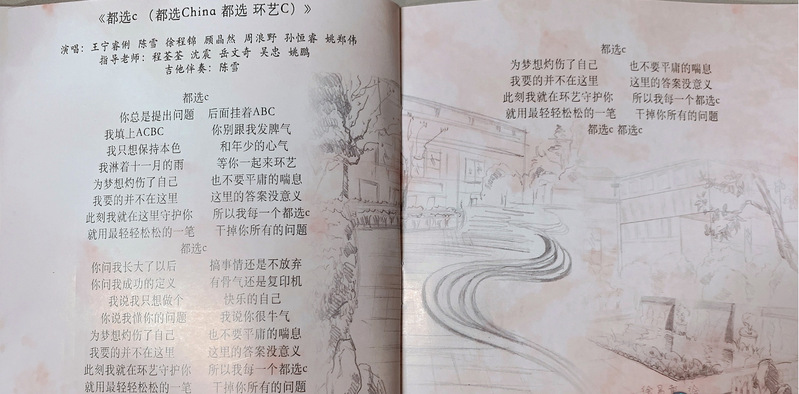 《都选c （都选China 都选 环艺C）》
演唱：王宁睿俐 陈雪 徐程锦 顾晶然 周浪野 孙恒睿 姚郑伟
指导老师：程荃荃 沈震 岳文奇 吴忠 姚鹏
吉他伴奏：陈雪
都选c
你总是提出问题 后面挂着ABC
我填上ACBC 你别跟我发脾气
我只想保持本色 和年少的心气
我淋着十一月的雨 等你一起来环艺
为梦想灼伤了自己 也不要平庸的喘息
我要的并不在这里 这里的答案没意义
此刻我就在这里守护你 所以我每一个都选c
就用最轻轻松松的一笔 干掉你所有的问题
都选c
你问我长大了以后 搞事情还是不放弃
你问我成功的定义 有骨气还是复印机
我说我只想做个 快乐的自己
你说我懂你的问题 我说你很牛气
为梦想灼伤了自己 也不要平庸的喘息
我要的并不在这里 这里的答案没意义
此刻我就在环艺守护你 所以我每一个都选c
就用最轻轻松松的一笔 干掉你所有的问题
都选c
为梦想灼伤了自己 也不要平庸的喘息
我要的并不在这里 这里的答案没意义
此刻我就在环艺守护你 所以我每一个都选c
就用最轻轻松松的一笔 干掉你所有的问题
都选c 都选c